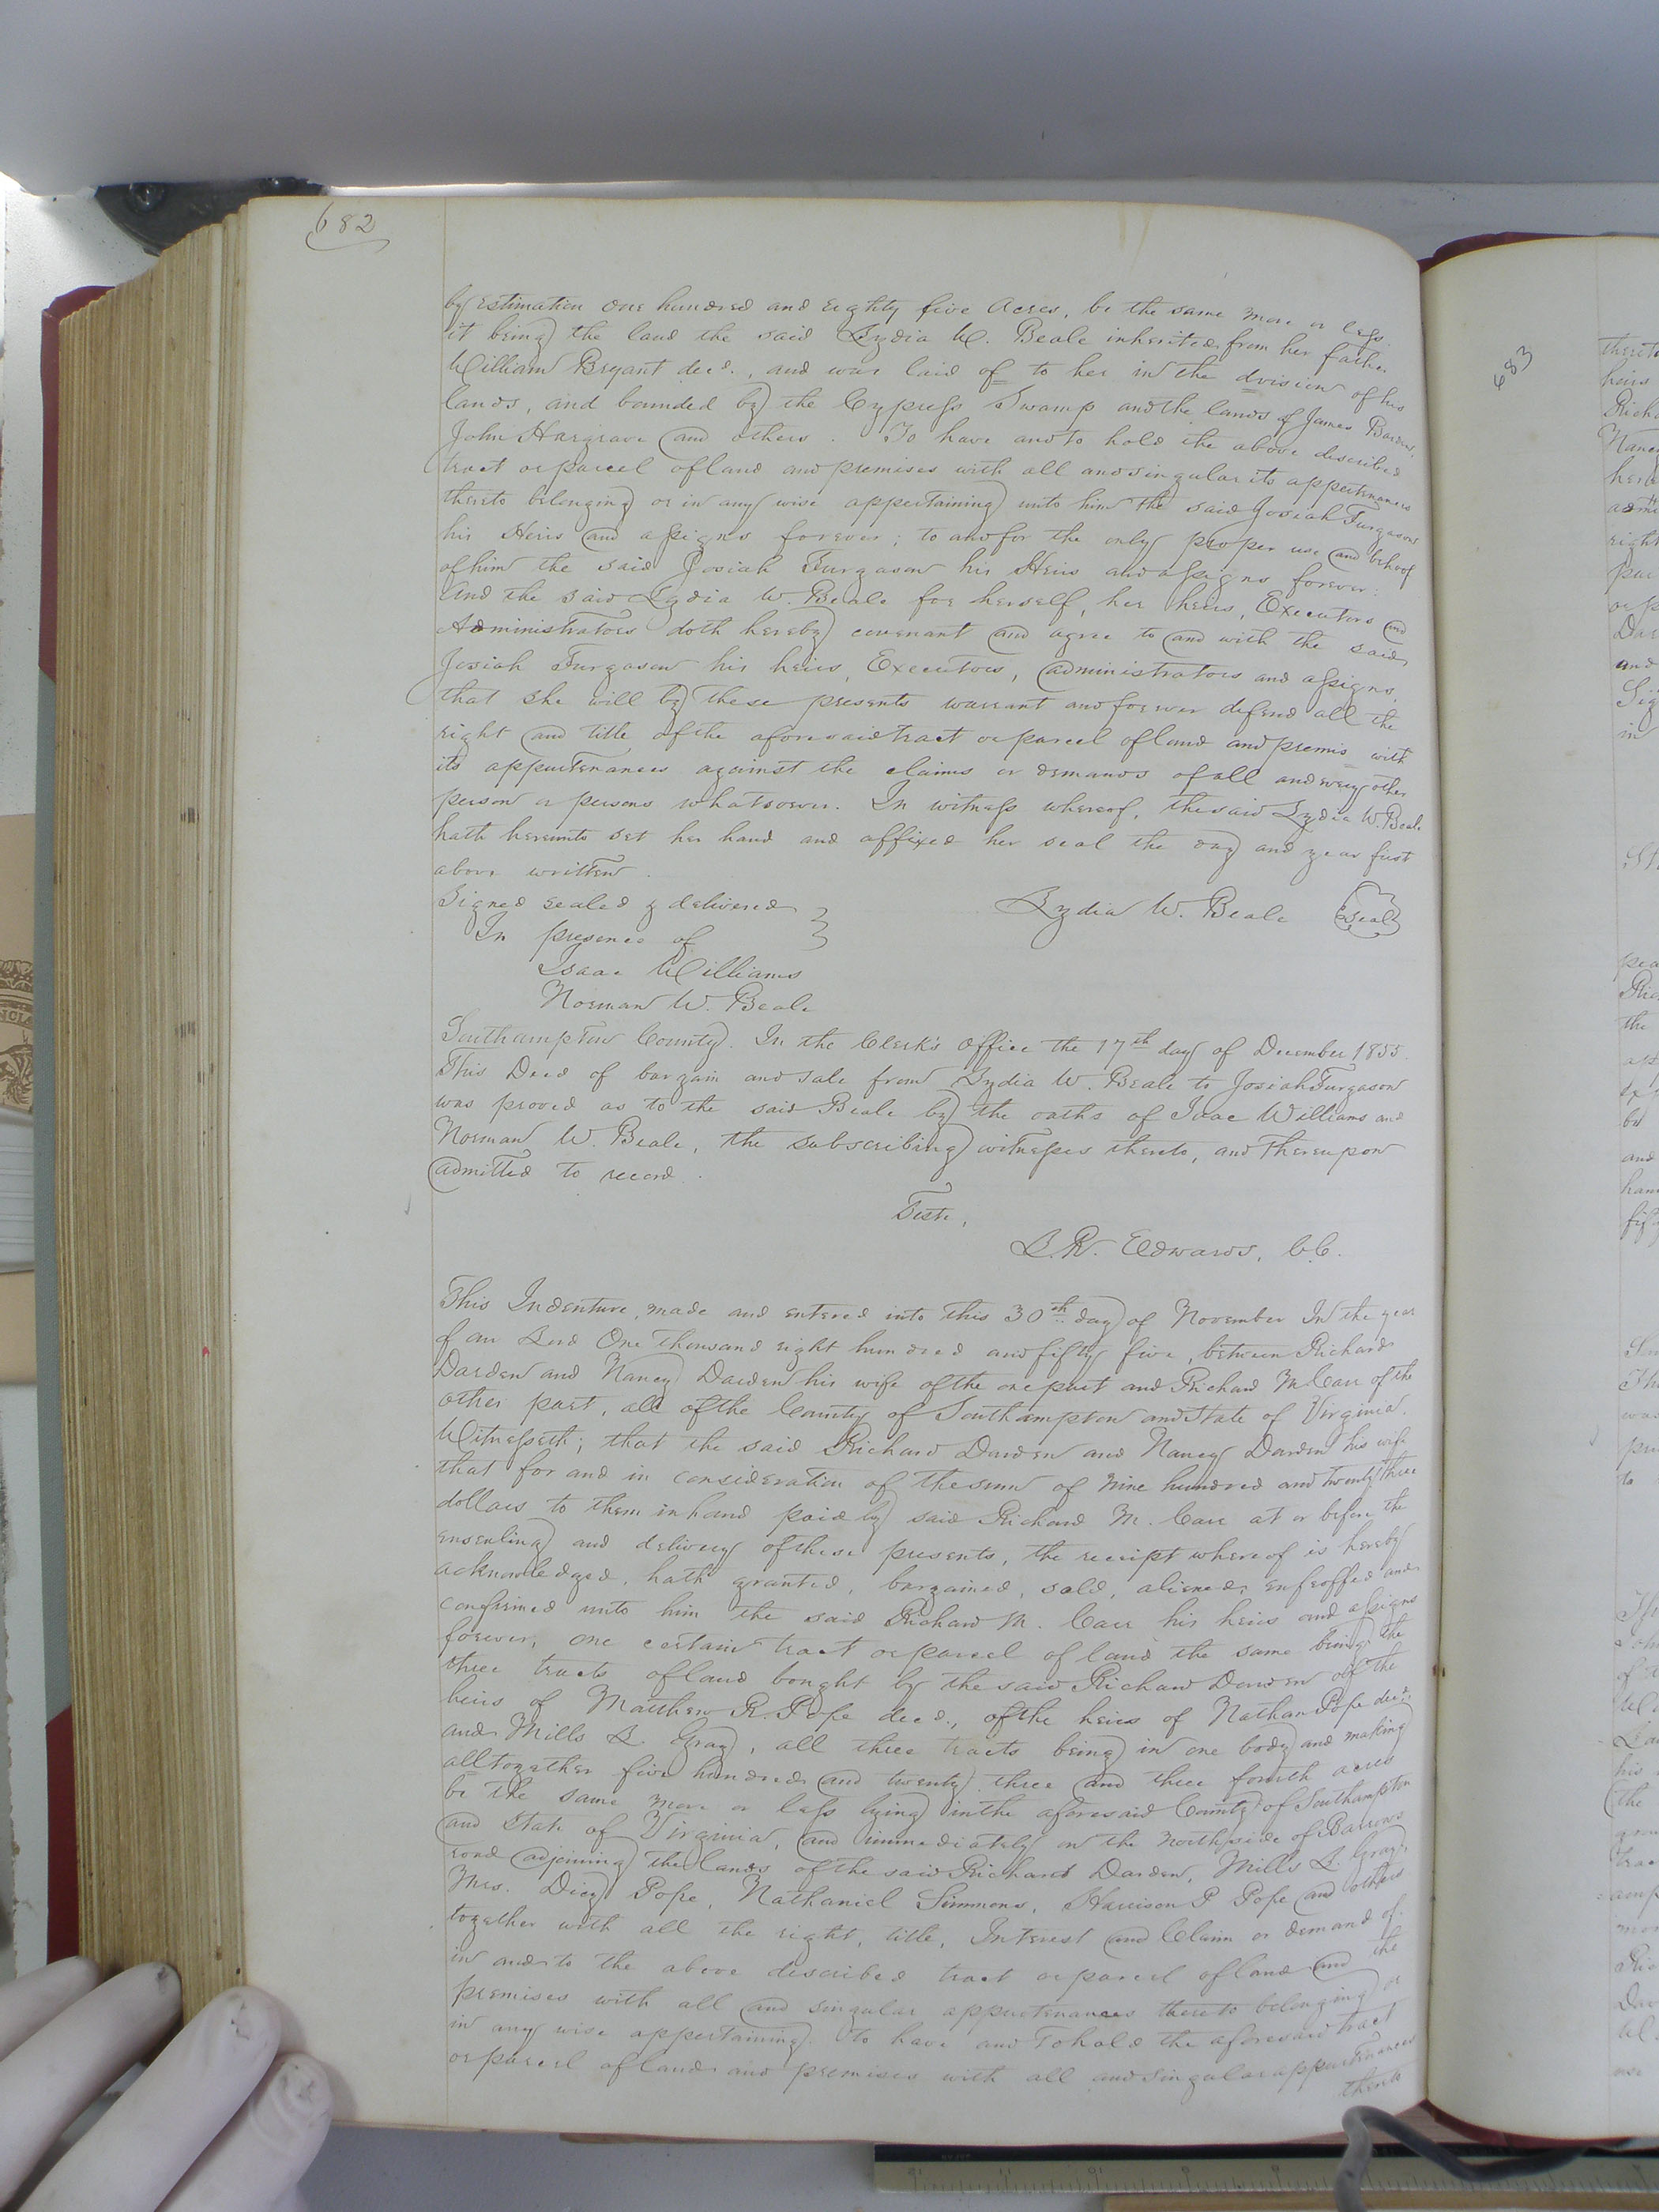 682
by estimation one hundred and eighty five acres, be the same more or less.
it being the land the said Lydia W. Beale inherited from her father
William Bryant decd., and was laid of to her in the dvision of his
lands, and bounded by the Cypress Swamp and the lands of James Barnes,
John Hargrave and others. To have and to hold the above described
tract or parcel of land and premises with all and singular its appertenances
thereto belonging or in any wise appertaining unto him the said Josiah Furgason
his Heirs and assigns forever; to and for the only proper use and behoof
of him the said Josiah Furgason his Heirs and assigns forever:
And the said Lydia W. Beale for herself, her heirs, Executors and
Administrators doth hereby covenant and agree to and with the said
Josiah Furgason his heirs, Executors, administrators and assigns,
that she will by these presents warrant and forever defend all the
right and title of the aforesaid tract or parcel of land and premis with
its appurtenances against the claims or demands of all and every other
person or persons whatsoever. In witness whereof, the said Lydia W. Beale
hath hereunto set her hand and affixed her seal the day and year first
above written.
Signed sealed & delivered
Lydia W. Beale Seal
In presence of
Isaac Williams
Norman W. Beale
Southampton County. In the Clerk's Office the 17th day of December 1855.
This Deed of bargain and sale from Lydia W. Beale to Josiah Furgason
was proved as to the said Beale by the oaths of Isaac Williams and
Norman W. Beale, the subscribing witnesses thereto, and thereupon
admitted to record.
Teste,
L. R. Edwards, C.C.
This Indenture, made and entered into this 30th day of November In the year
of our Lord One Thousand eight hundred and fifty five, between Richard
Darden and Nancy Darden his wife of the one part and Richard M. Carr of the
other part, all of the County of Southampton and State of Virginia.
Witnesseth; that the said Richard Darden and Nancy Darden his wife
that for and in consideration of the sum of nine hundred and twenty three
dollars to them in hand paid by said Richard M. Carr at or before the
ensealing and delivery of these presents, the receipt whereof is hereby
acknowledged, hath granted, bargained, sold, aliened, enfeoffed and
confirmed unto him the said Richard M. Carr his heirs and assigns
forever, one certain tract or parcel of land the same being the
three tracts of land bought by the said Richard Darden of the
heirs of Matthew R. Pope decd., of the heirs of Nathan Pope decd.
and Mills L. Gray, all three tracts being in one body and making
alltogather five hundred and twenty three and three fourth acres
be the same more or less lying in the aforesaid County of Southampton
and State of Virginia, and immediately on the north side of Barrows
road adjoining the lands of the said Richard Darden, Mills L. Gray,
Mrs. Dicy Pope, Nathaniel Simmons, Harrison P Pope and others
together with all the right, title, Interest and Claim or demand of
in and to the above described tract or parcel of land and the
premises with all and singular appurtenances thereto belonging or
in any wise appertaining. To have and To hold the aforesaid tract
or parcel of land and premises with all and singular appurtenances
thereto
683